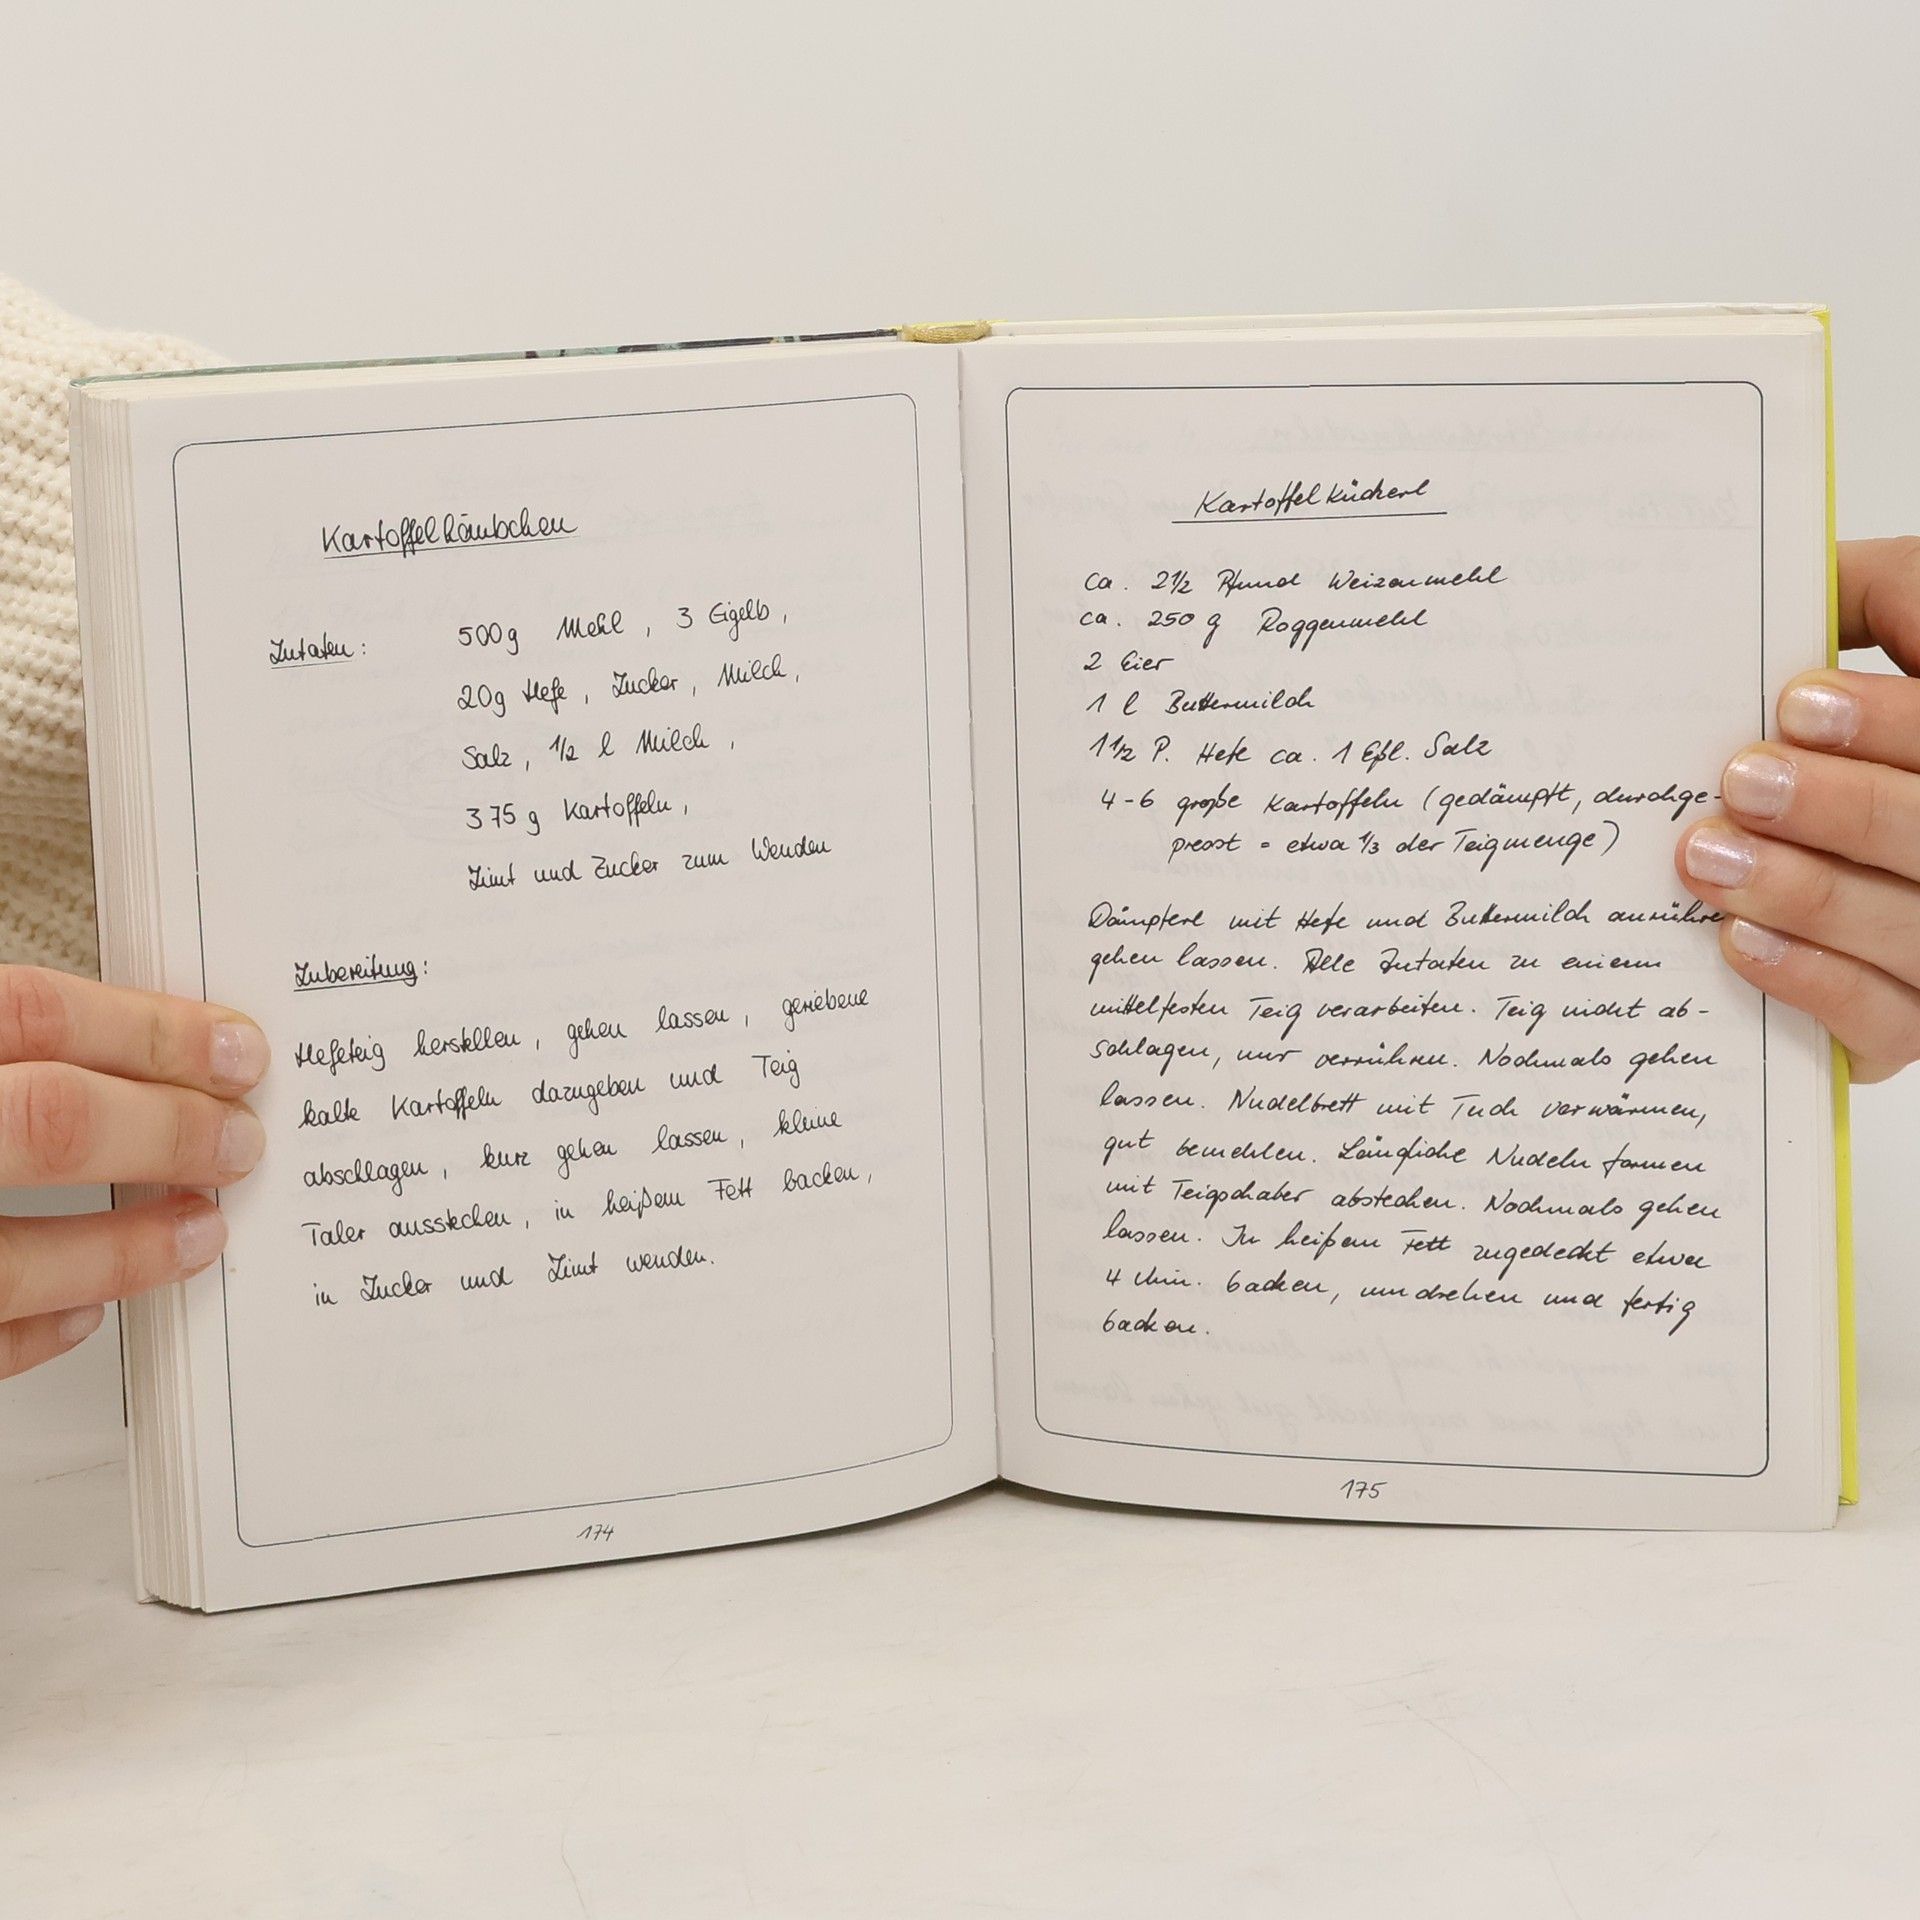 Kartoffelhäubchen
Zutaten: 500g Mehl, 3 Eigelb,
20g Hefe, Zucker, Milch,
Salz, 1/2 l Milch,
375 g Kartoffeln,
Zimt und Zucker zum Wenden
Zubereitung:
Hefeteig herstellen, gehen lassen, geriebene
kalte Kartoffeln dazugeben und Teig
abschlagen, kurz gehen lassen, kleine
Taler ausstechen, in heißem Fett backen,
in Zucker und Zimt wenden.
174
Kartoffelkücherl
ca. 2 1/2 Pfund Weizenmehl
ca. 250 g Roggenmehl
2 Eier
1 l Buttermilch
1 1/2 P. Hefe ca. 1 Eßl. Salz
4-6 große Kartoffeln (gedämpft, durchge-
presst = etwa 1/3 der Teigmenge)
Dämpferl mit Hefe und Buttermilch anrühre
gehen lassen. Alle Zutaten zu einem
mittelfesten Teig verarbeiten. Teig nicht ab-
schlagen, nur verrühren. Nochmals gehen
lassen. Nudelbrett mit Tuch verwärmen,
gut bemehlen. Längliche Nudeln formen
mit Teigschaber abstechen. Nochmals gehen
lassen. In heißem Fett zugedeckt etwa
4 Min. backen, umdrehen und fertig
backen.
175